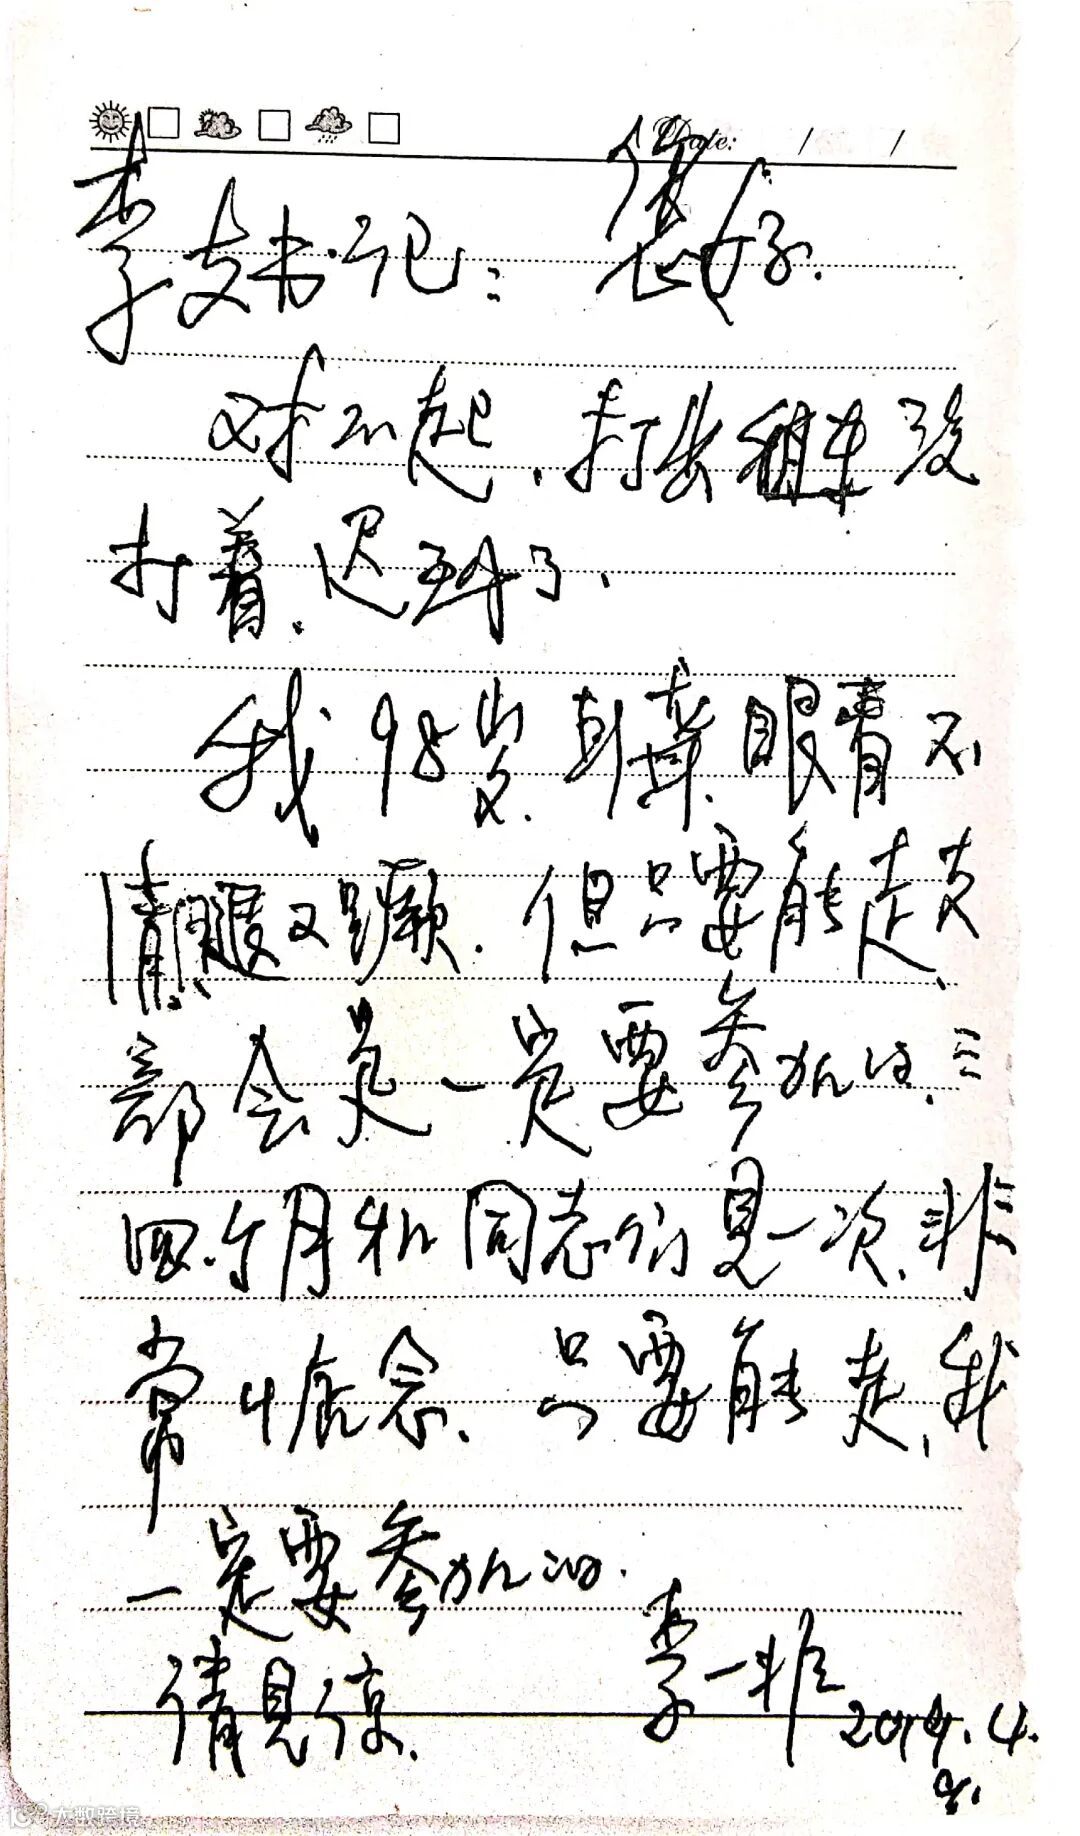 Date: / /
李支书记： 您好.
对不起，打出租车没
打着、迟到了、
我98岁.耳聋.眼睛不
清、腿又蹶.但只要能走、支
部会是一定要参加的.三
四个月和同志们见一次，非
常惦念、只要能走，我
一定要参加的.
请见谅. 李一非
2019.4.
大数跨境